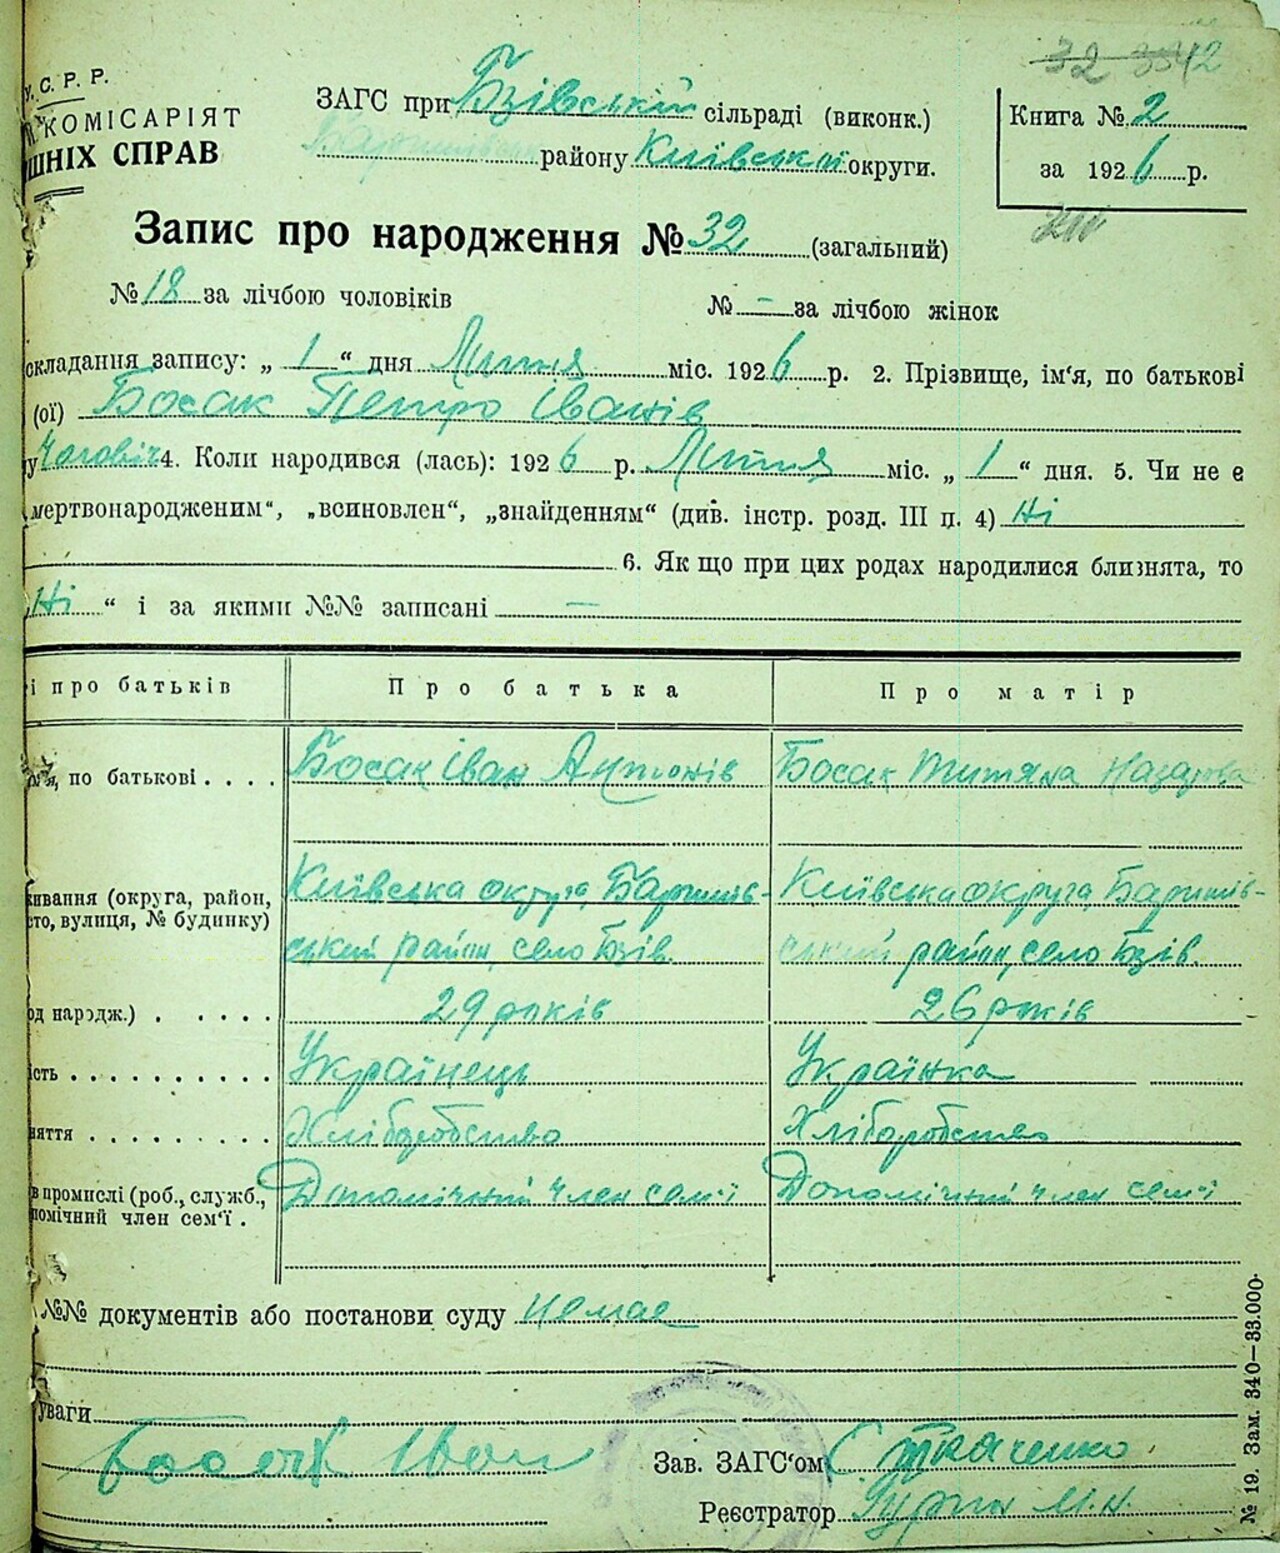 У.С.Р.Р.
КОМІСАРІЯТ
ШНІХ СПРАВ
ЗАГС при Бзівській сільраді (виконк.)
району Київської округи.
32
Книга № 2
за 1926 р.
Запис про народження № 32 (загальний)
№ 18 за лічбою чоловіків № - за лічбою жінок
складання запису: „ 1 “ дня Липня міс. 1926 р. 2. Прізвище, ім‘я, по батькові
(ої) Босак Петро Іванів
у Чоловіч 4. Коли народився (лась): 1926 р. Липня міс. „ 1 “ дня. 5. Чи не є
мертвонародженим“, „всиновлен“, „знайденням“ (див. інстр. розд. III п. 4) Ні
6. Як що при цих родах народилися близнята, то
„Ні “ і за якими №№ записані —
і про батьків Про батька Про матір
по батькові . . . . Босак Іван Антонів Босак Титяна Назарова
живання (округа, район, Київська округа, Баришів- Київська округа, Баришів-
сто, вулиця, № будинку) ський район, село Бзів. ський район, село Бзів.
од народж.) . . . . . 29 років 26 років
ість . . . . . . . . . . Українець Українка
няття . . . . . . . . . Хліборобство Хліборобство
в промислі (роб., служб., Допомічний член сем'ї Допомічний член сем'ї
помічний член сем‘ї .
№№ документів або постанови суду Немає
уваги
Босак Іван Зав. ЗАГС‘ом С Ткаченко
Реєстратор М.Н.
№ 19. Зам. 340—33.000.